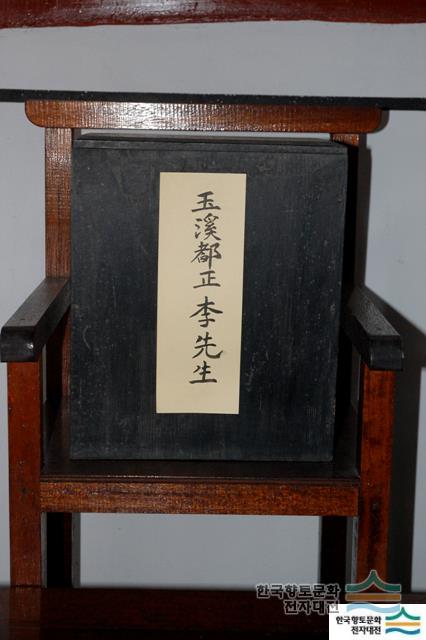 玉溪都正李先生
한국향토문화
전자대전
한국향토문화
전자대전